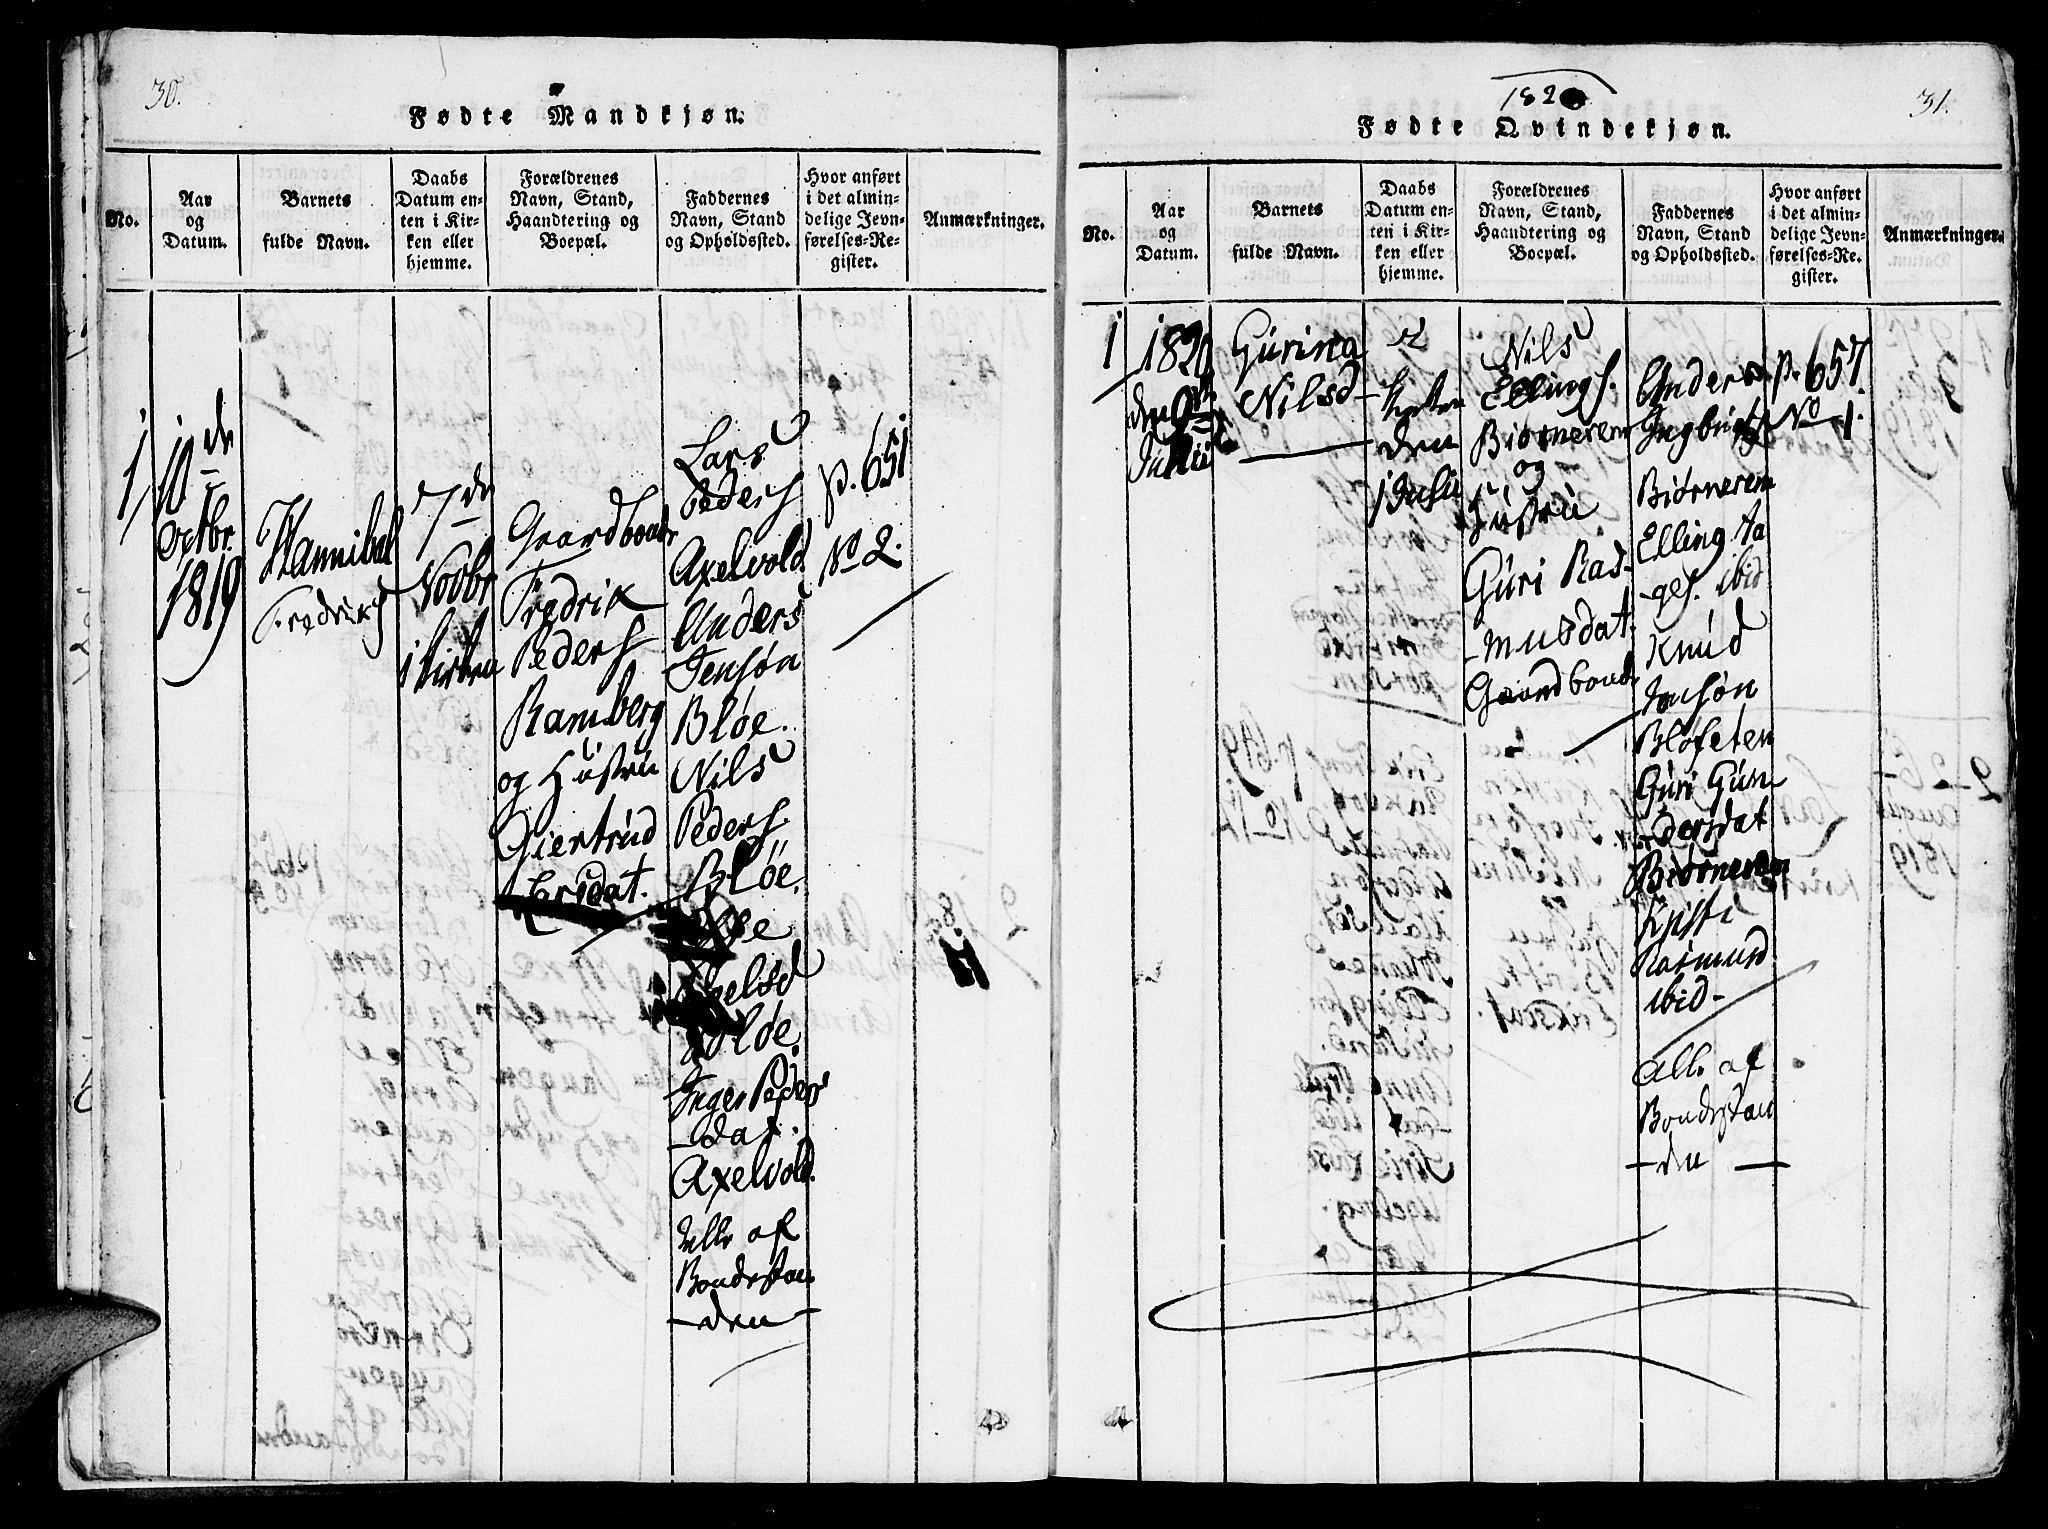 30.
Fødte Mandkjøn.
No.
Aar
og
Datum.
Barnets
fulde Navn.
Daabs
Datum en-
ten i Kir-
ken eller
hjemme.
Forældrenes
Navn, Stand,
Haandtering og
Boepæl.
Faddernes
Navn, Stand
og Opholdssted.
Hvor anført
i det almin-
delige Jevn-
førelses-Re-
gister.
Anmærkninger.
1
10 de
Octbr.
1819
Hannibal
Fredriks
7 de
Novbr
i Kirken
Gaardbonde
Fredrik
Peders
Ramberg
og Hustru
Giertrud
Ersdat.
Lars
Peders
Axelvold
Anders
Jensøn
Bløe.
Nils
Peders.
Bløe.
Bløe.
Inger Peders
-dat.
Axelvold.
Alle af
Bondestan
-den-
p. 651
No 2.
1820
31.
Fødte Qvindekjøn.
No.
Aar
og
Datum.
Barnets
fulde Navn.
Daabs
Datum en-
ten i Kir-
ken eller
hjemme.
Forældrenes
Navn, Stand,
Haandtering og
Boepæl.
Faddernes
Navn, Stand
og Opholdssted.
Hvor anført
i det almin-
delige Jevn-
førelses-Re-
gister.
Anmærkninger.
1
1820
den 9de
Gurina
Nilsd-
den
Nils
Ellings.
Biørnerem
og
Hustru
Guri Ras-
-musdat.
Gaardbonde
Anders
Ingbrigts
Biørnerem
Elling Aa
-ges. ibid
Knud
Jensøn
Bløfeten
Guri Gun
-dersdat
Biørnerem
Kristi
Rasmusd
ibid-
Alle af
Bondestan
-den-
p. 657.
No 1.